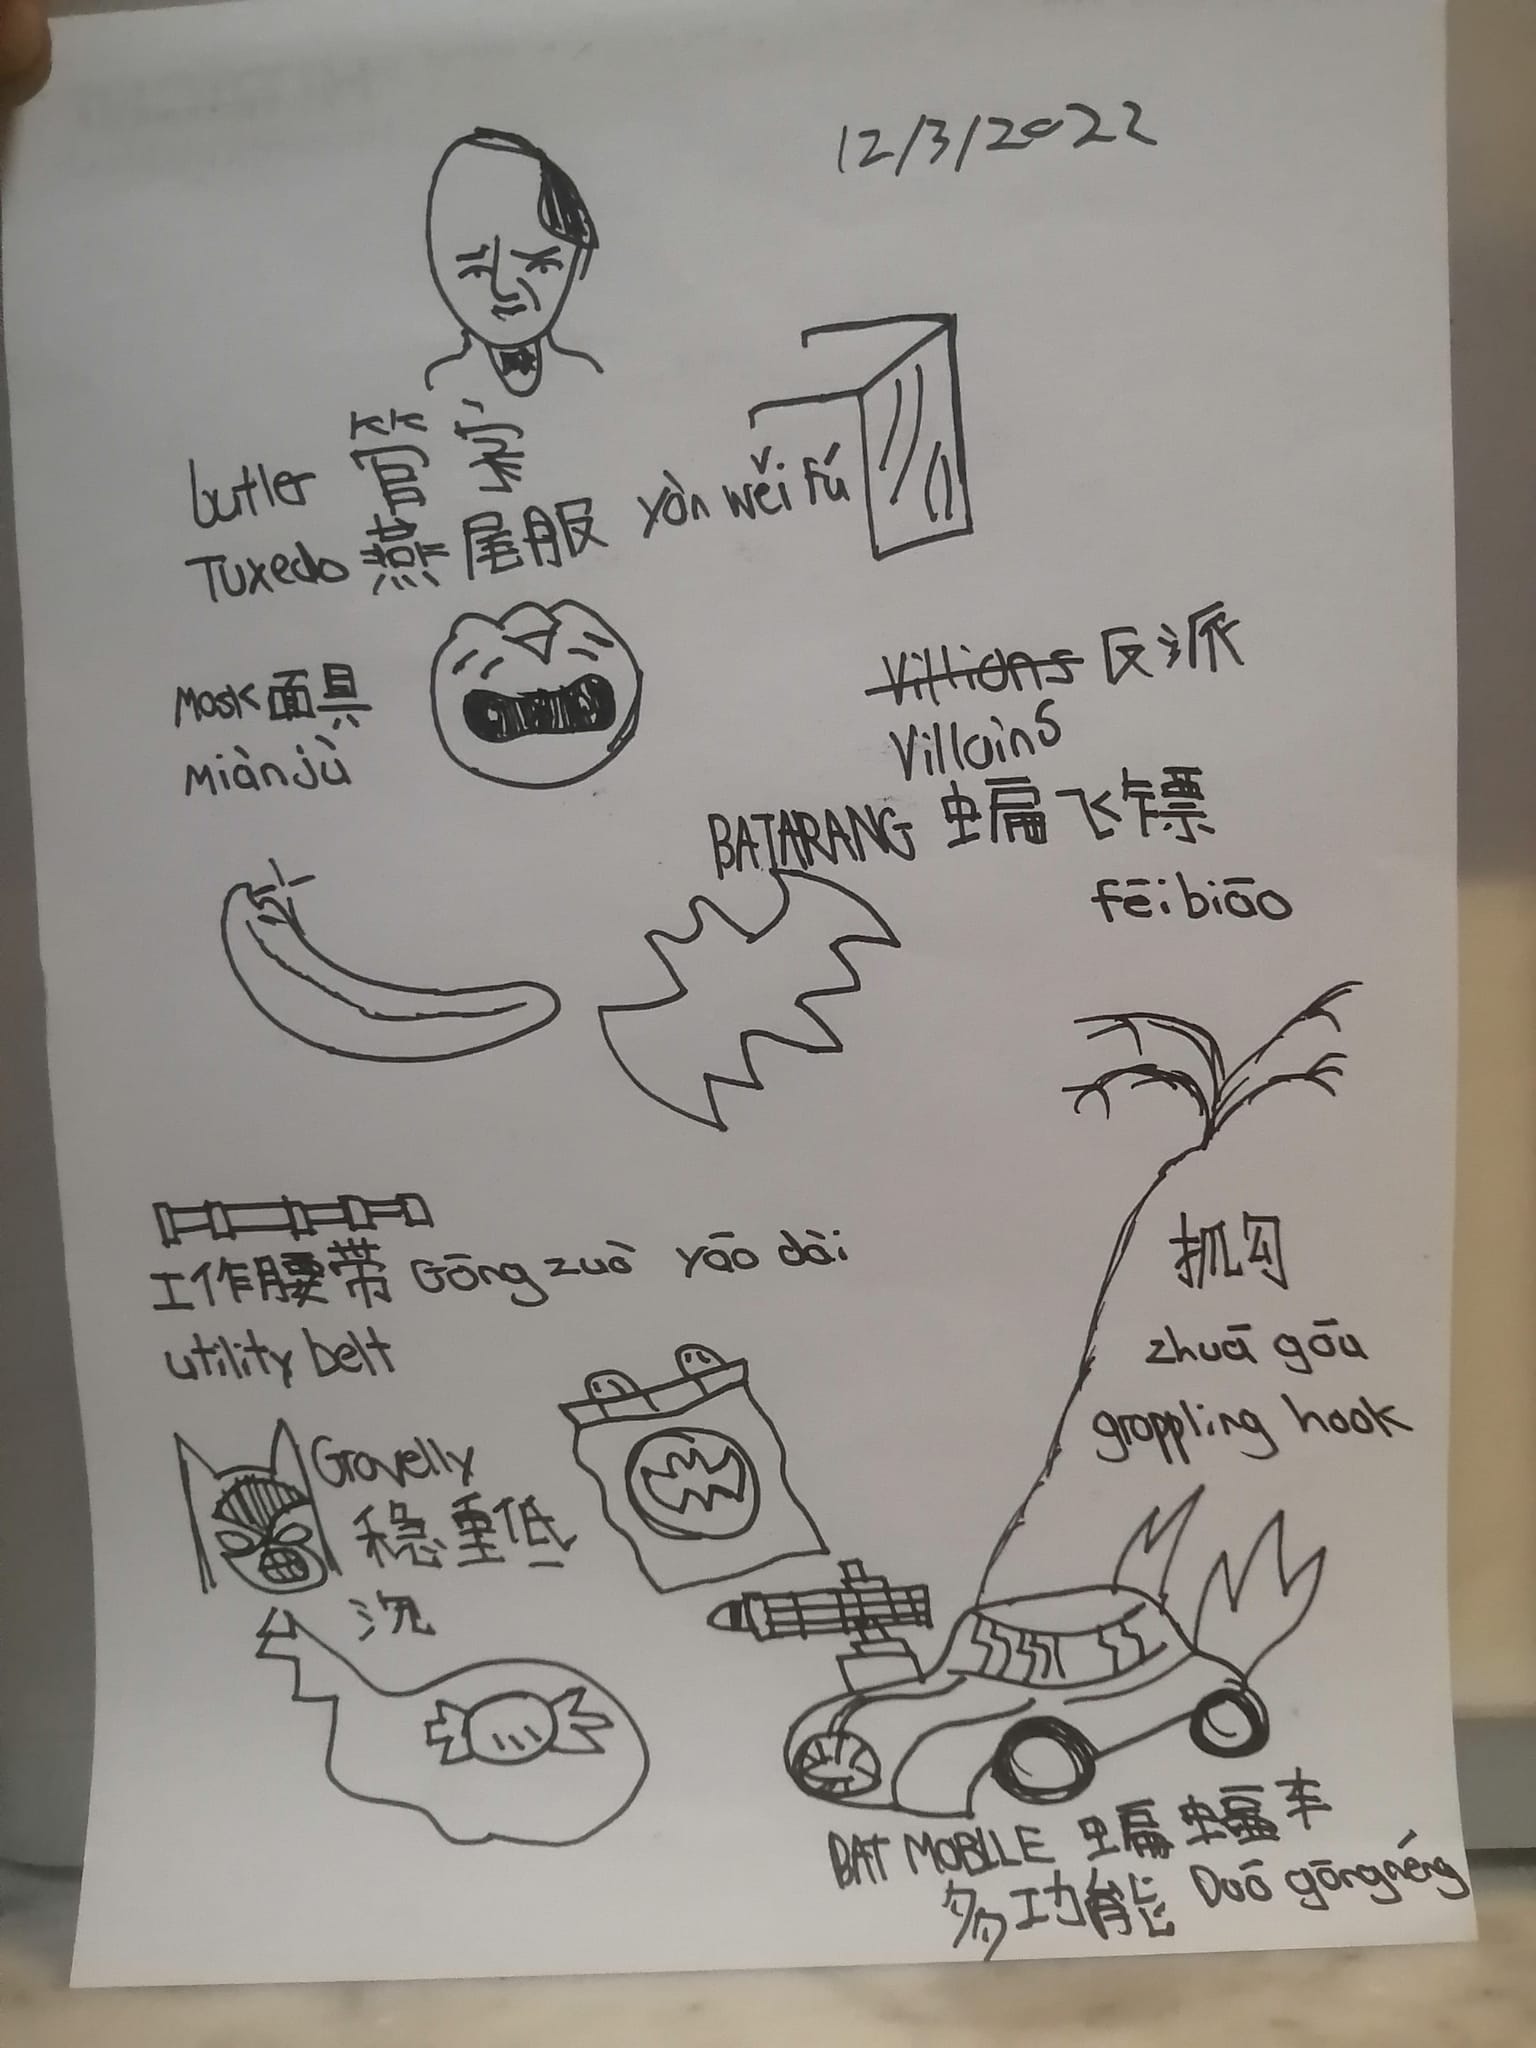 12/3/2022
butler 管家
Tuxedo 燕尾服 yàn wěi fú
Mask 面具
Miànjù
Villians 反派
Villains
BATARANG 蝙飞镖
fēibiāo
工作腰带 Gōng zuò yāo dài
utility belt
抓勾
zhuā gōu
grappling hook
Gravelly
稳重低
沉
BAT MOBILE 蝙蝠车
多功能 Duō gōngnéng